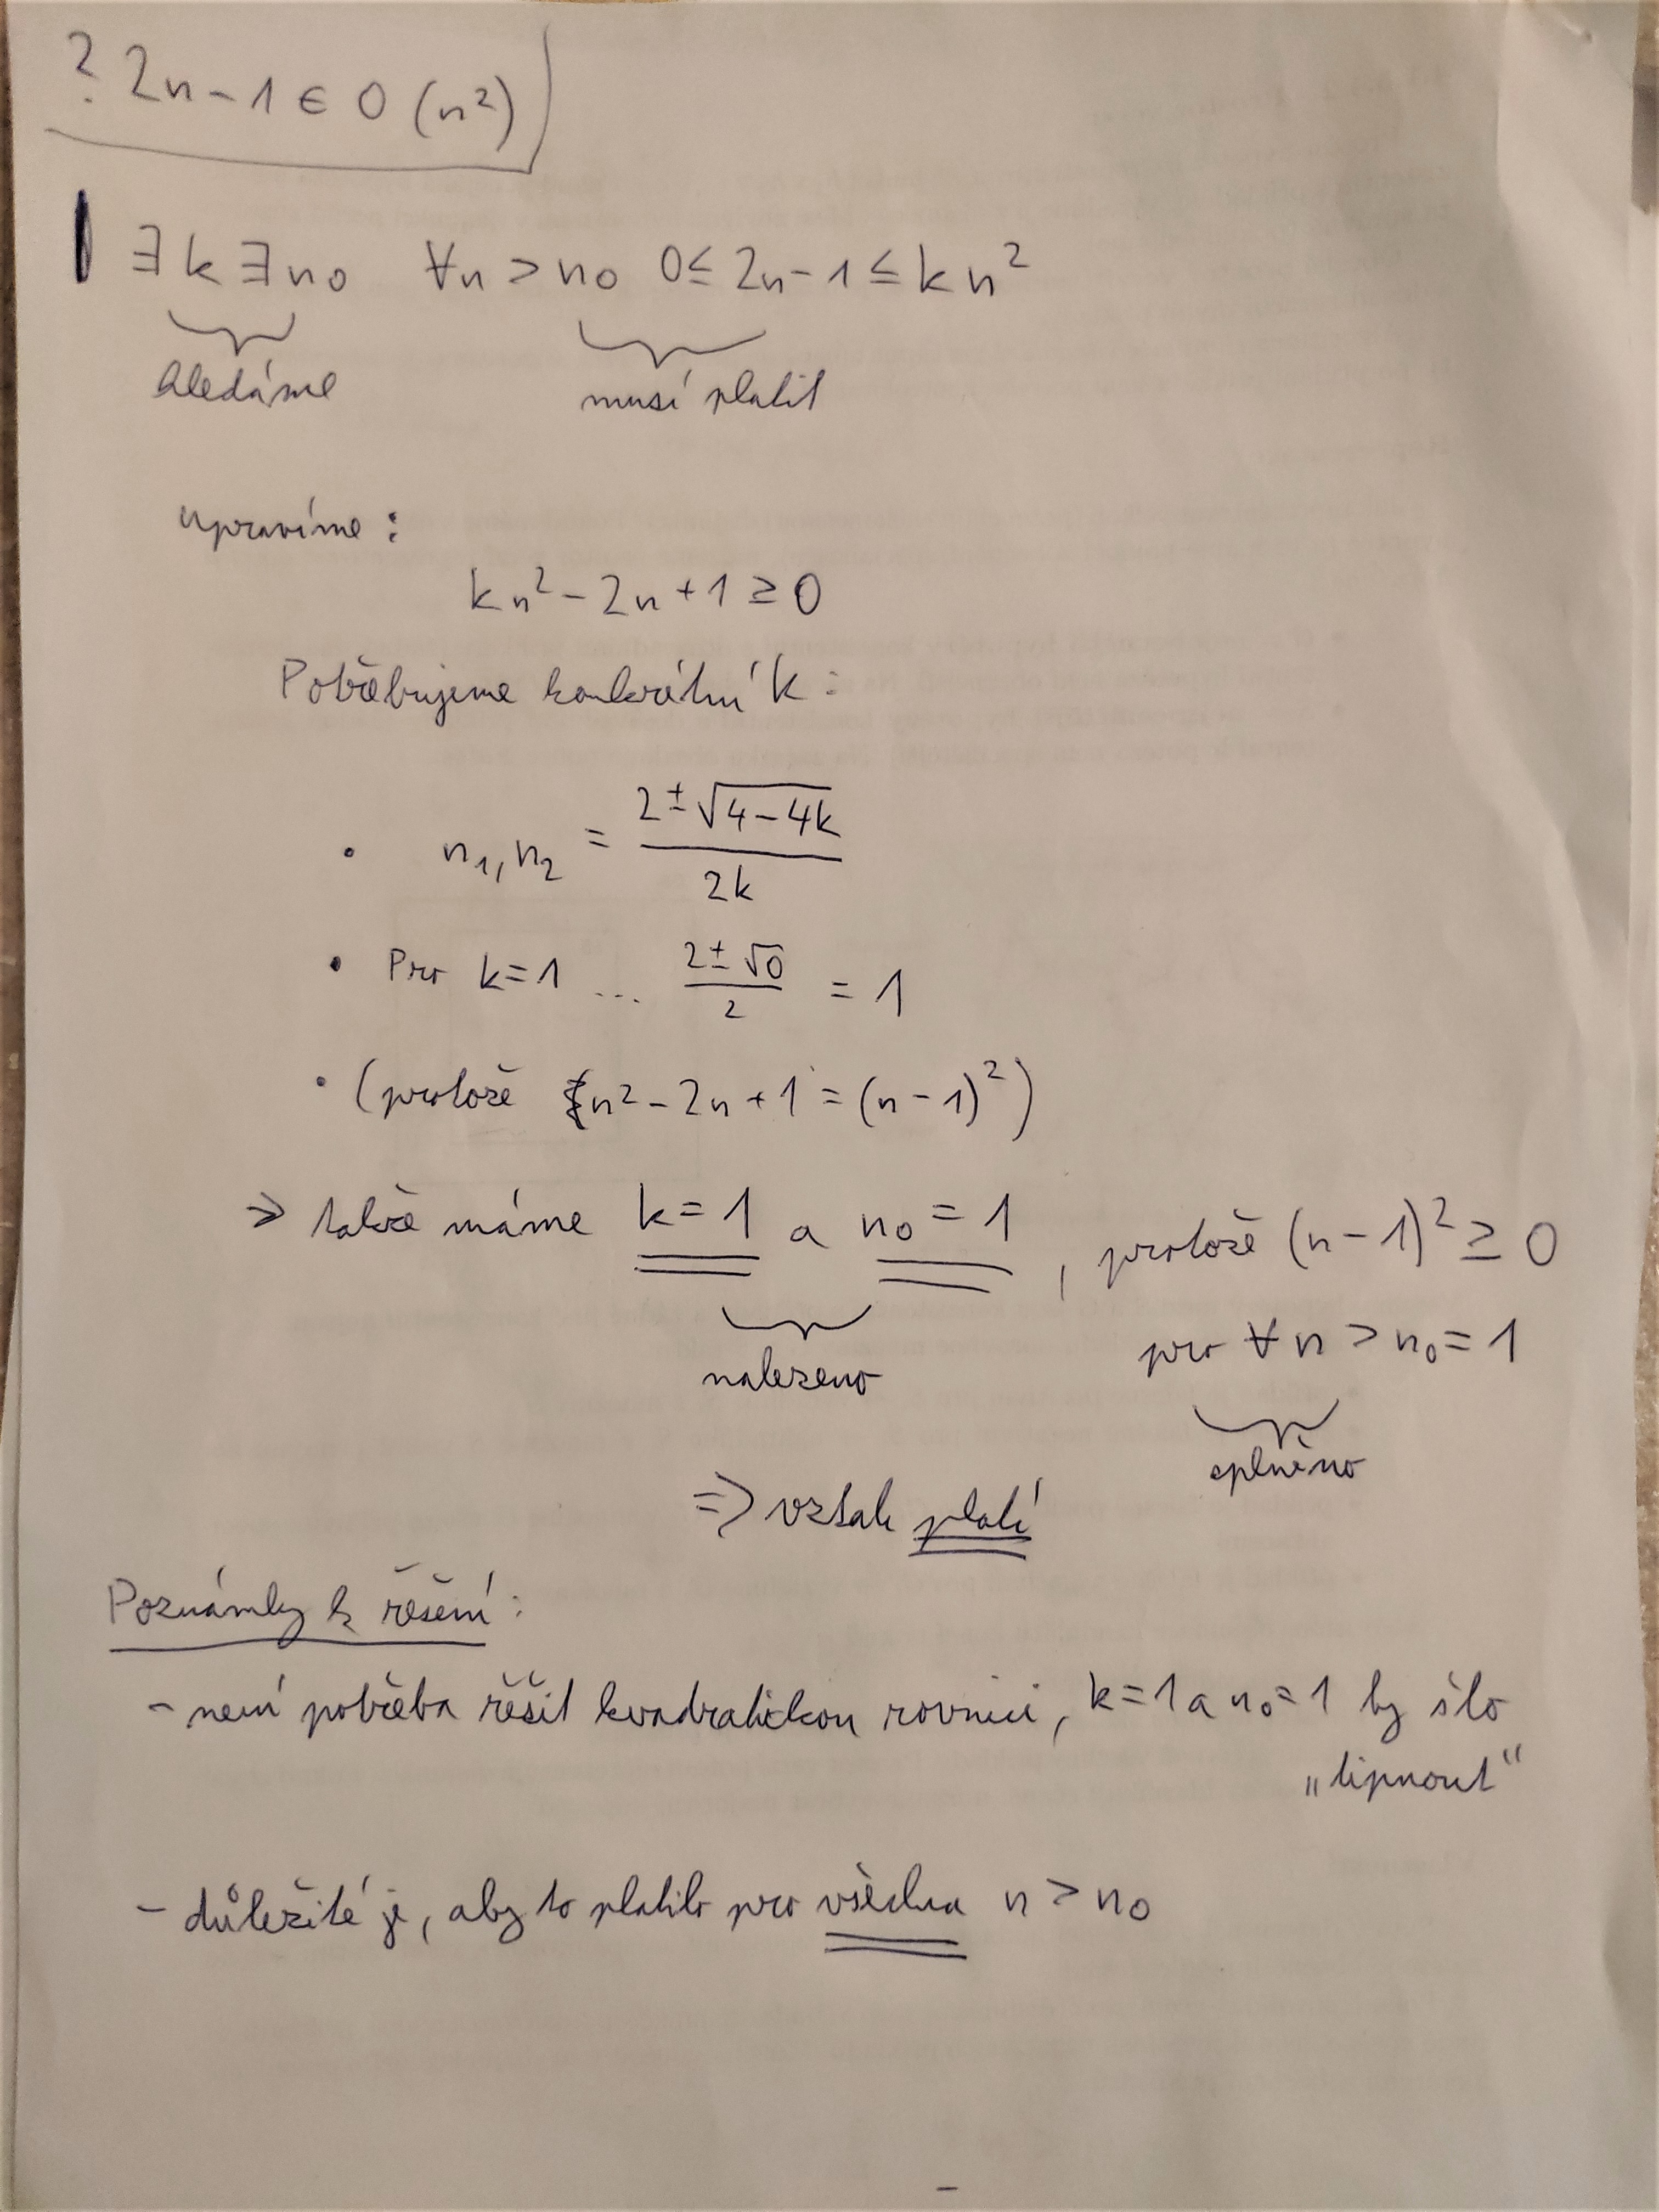 ? 2n - 1 ∈ O (n²)
∃ k ∃ n₀ ∀n > n₀ 0 ≤ 2n - 1 ≤ k n²
hledáme musí platit
upravíme :
kn² - 2n + 1 ≥ 0
Potřebujeme konkrétní k :
• n₁, n₂ = (2 ± √(4 - 4k)) / 2k
• Pro k = 1 ... (2 ± √0) / 2 = 1
• (protože n² - 2n + 1 = (n - 1)²)
⇒ takže máme k = 1 a n₀ = 1 , protože (n - 1)² ≥ 0
pro ∀ n > n₀ = 1
nalezeno
splněno
⇒ vztah platí
Poznámky k řešení :
- není potřeba řešit kvadratickou rovnici, k = 1 a n₀ = 1 by šlo
„tipnout“
- důležité je, aby to platilo pro všechna n > n₀